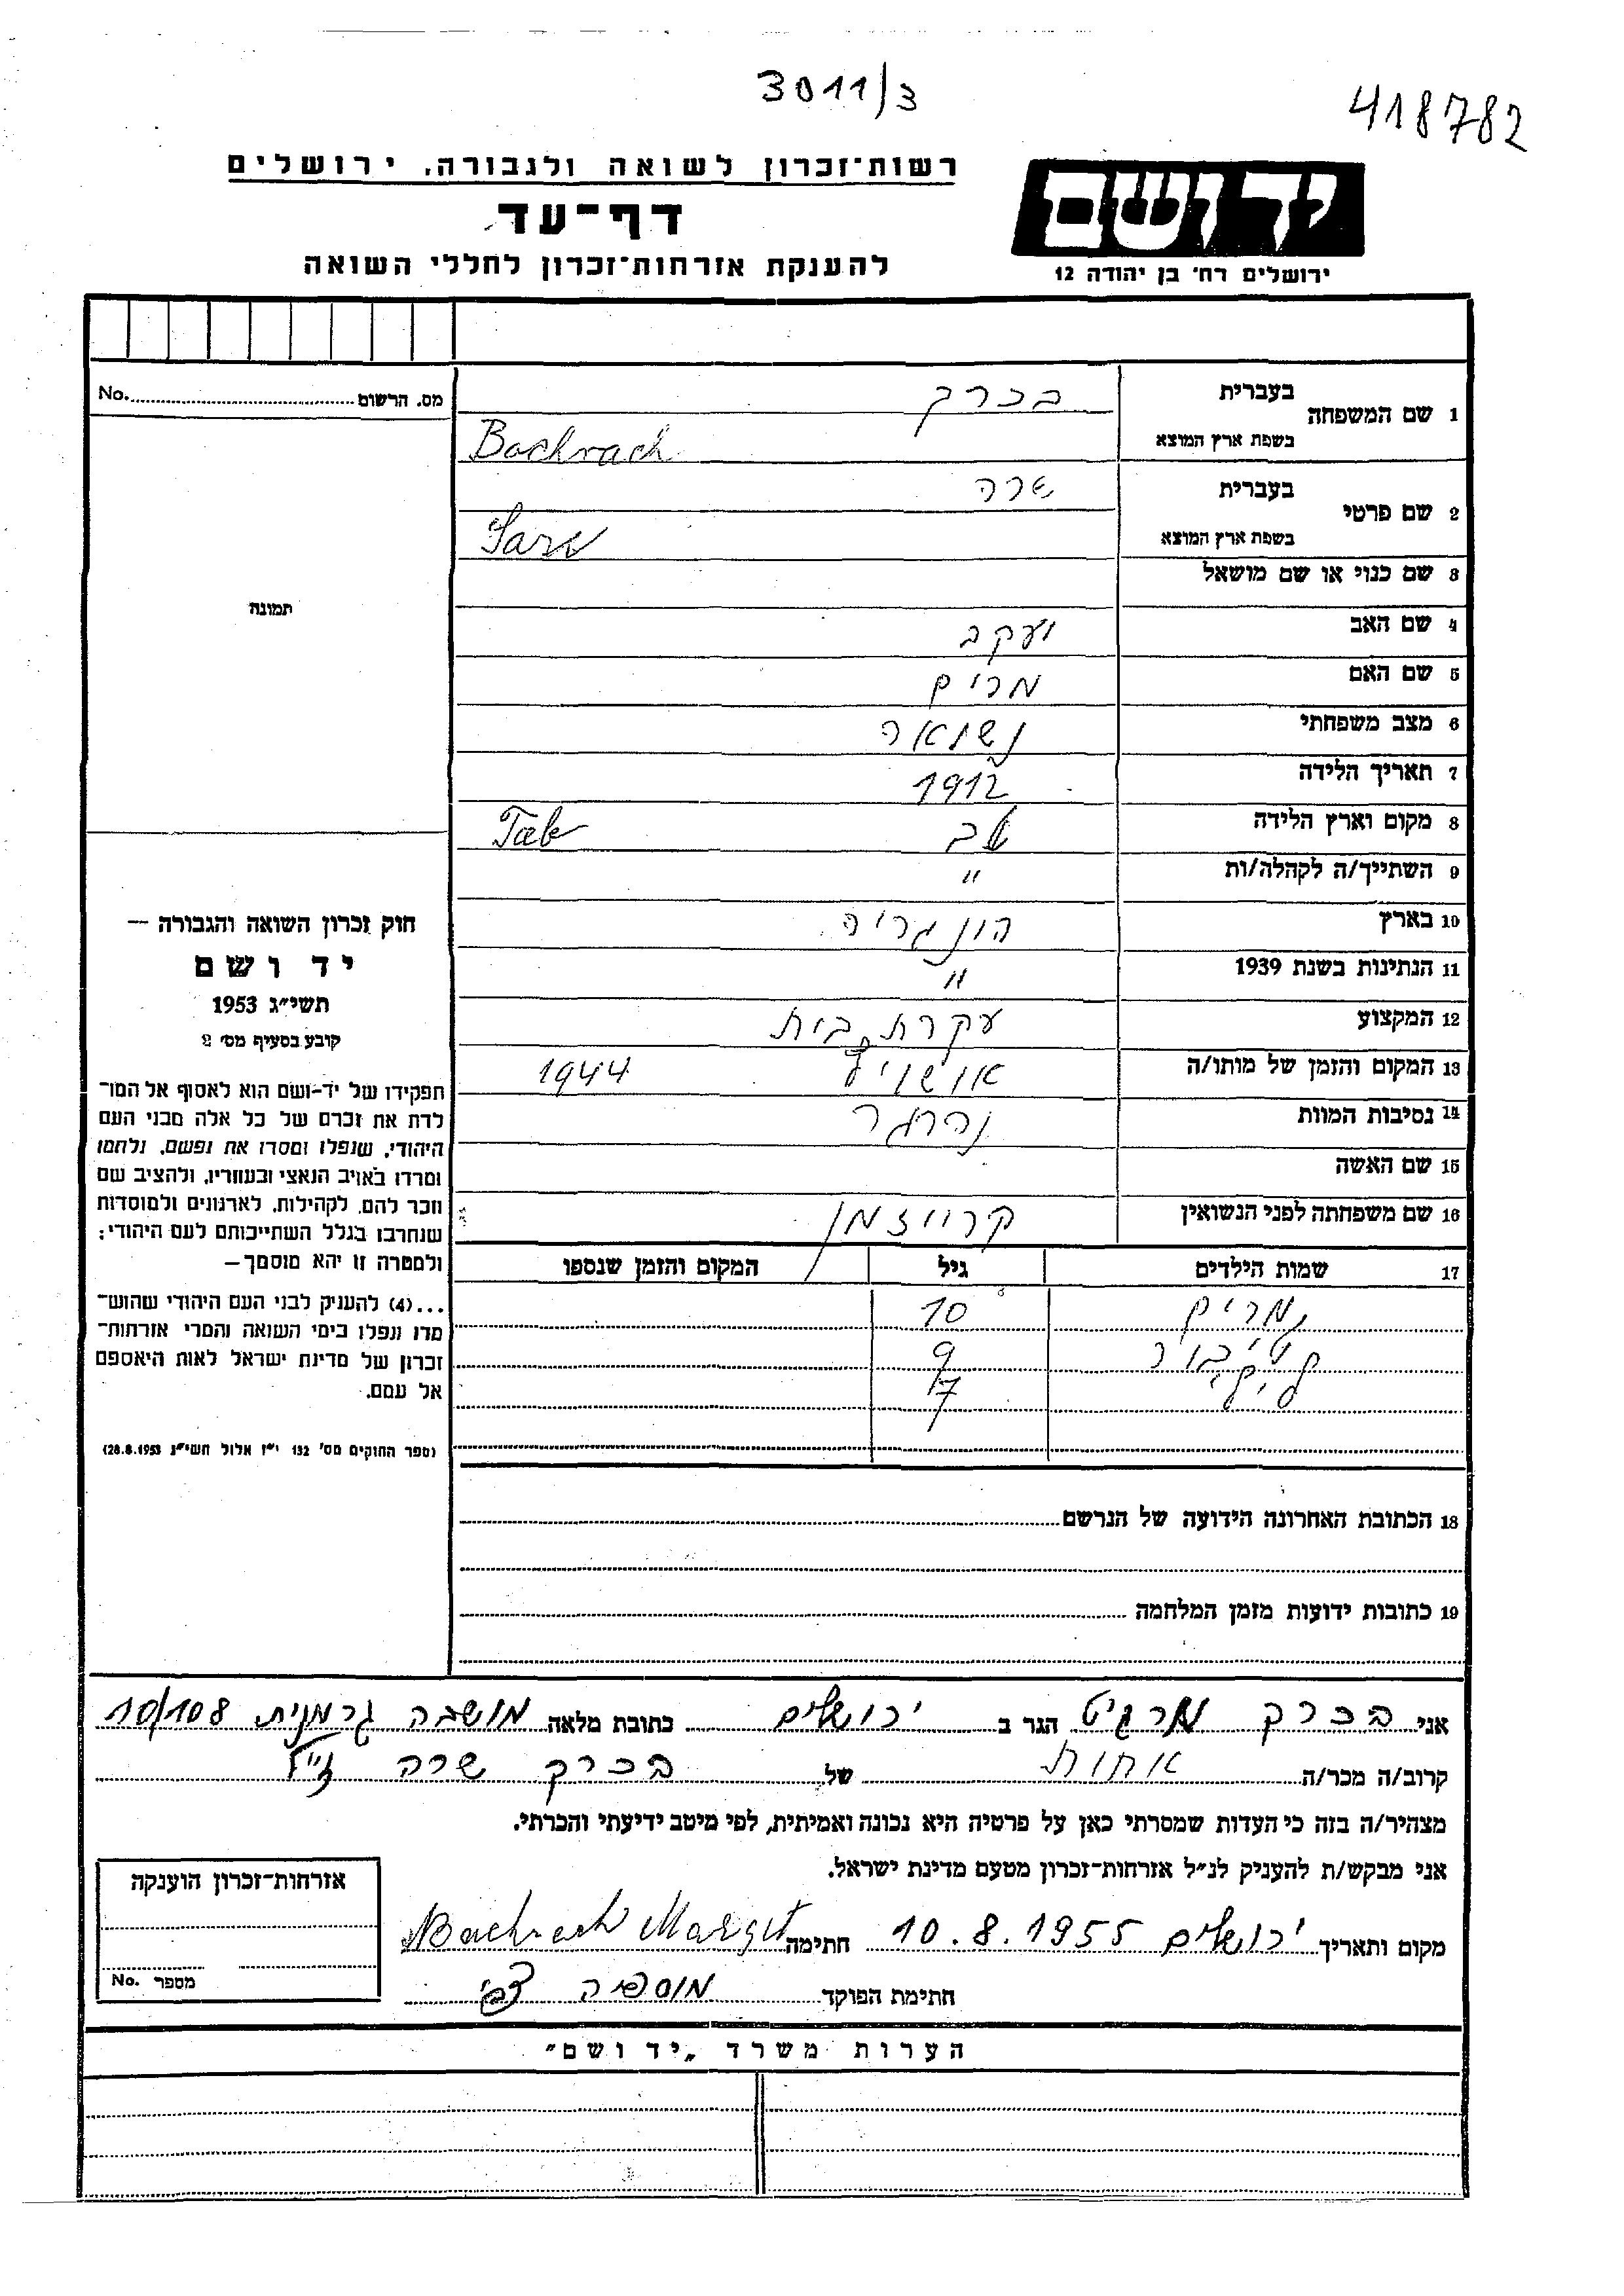 3011/3
418782
יד ושם
ירושלים רח' בן יהודה 12
רשות־זכרון לשואה ולגבורה, ירושלים
דף־עד
להענקת אזרחות־זכרון לחללי השואה
מס. הרשום No.
תמונה
חוק זכרון השואה והגבורה —
יד ושם
תשי״ג 1953
קובע בסעיף מס׳ 2
תפקידו של יד-ושם הוא לאסוף אל המו־
לדת את זכרם של כל אלה מבני העם
היהודי, שנפלו ומסרו את נפשם, נלחמו
ומרדו באויב הנאצי ובעוזריו, ולהציב שם
וזכר להם, לקהילות, לארגונים ולמוסדות
שנחרבו בגלל השתייכותם לעם היהודי;
ולמטרה זו יהא מוסמך—
...(4) להעניק לבני העם היהודי שהוש־
מדו ונפלו בימי השואה והמרי אזרחות־
זכרון של מדינת ישראל לאות היאספם
אל עמם.
(ספר החוקים מס׳ 132 י״ז אלול תשי״ג 28.8.1953)
1 שם המשפחה בעברית בכרך
בשפת ארץ המוצא Bachrach
2 שם פרטי בעברית שרה
בשפת ארץ המוצא
3 שם כנוי או שם מושאל
4 שם האב יעקב
5 שם האם מרים
6 מצב משפחתי נשואה
7 תאריך הלידה 1912
8 מקום וארץ הלידה טב Tab
9 השתייך/ה לקהלה/ות "
10 בארץ הונגריה
11 הנתינות בשנת 1939 "
12 המקצוע עקרת בית
13 המקום והזמן של מותו/ה 1944
14 נסיבות המוות נהרגה
15 שם האשה
16 שם משפחתה לפני הנשואין קרויזמן
17 שמות הילדים גיל המקום והזמן שנספו
מרים 10
9
7
18 הכתובת האחרונה הידועה של הנרשם
19 כתובות ידועות מזמן המלחמה
אני בכרך מרגיט הגר ב ירושלים כתובת מלאה מושבה גרמנית 10/108
קרוב/ה מכר/ה אחות של בכרך שרה ז״ל
מצהיר/ה בזה כי העדות שמסרתי כאן על פרטיה היא נכונה ואמיתית, לפי מיטב ידיעתי והכרתי.
אני מבקש/ת להעניק לנ״ל אזרחות-זכרון מטעם מדינת ישראל.
מקום ותאריך ירושלים 10.8.1955 חתימה Bachrach Margit
חתימת הפוקד
אזרחות־זכרון הוענקה
מספר No.
הערות משרד „יד ושם״